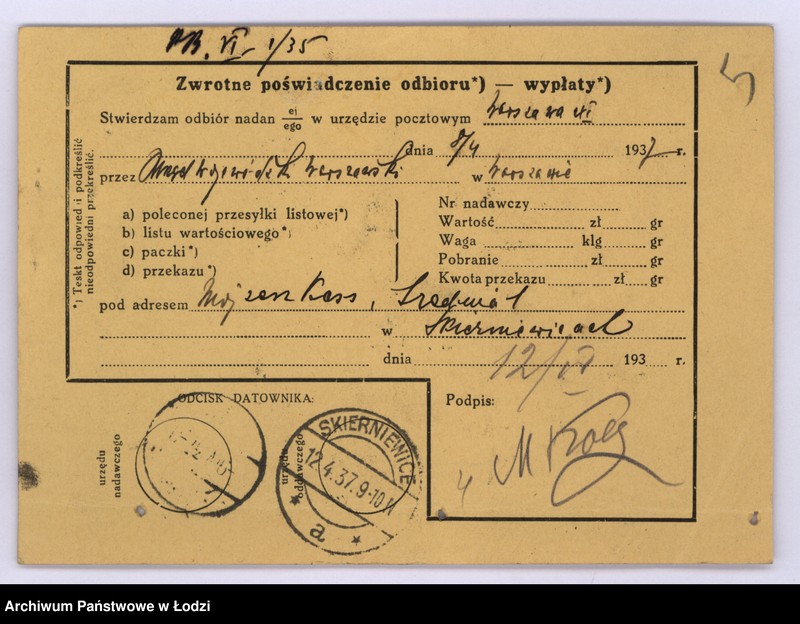 VI 1/35
Zwrotne poświadczenie odbioru*) — wypłaty*)
Stwierdzam odbiór nadan ej/ego w urzędzie pocztowym Warszawa VI
dnia 8/4 1937 r.
przez Urząd Wojewódzki Warszawski w Warszawie
*) Teskt odpowied i podkreślić
nieodpowiedni przekreślić.
a) poleconej przesyłki listowej*)
b) listu wartościowego*)
c) paczki*)
d) przekazu*)
Nr nadawczy
Wartość zł gr
Waga klg gr
Pobranie zł gr
Kwota przekazu zł gr
pod adresem Mojżesz , Średnia 1
w Skierniewicach
dnia 12/IV 193 r.
ODCISK DATOWNIKA:
urzędu
nadawczego
urzędu
oddawczego
SKIERNIEWICE
12.4.37.9-10
a
Podpis:
M
Archiwum Państwowe w Łodzi